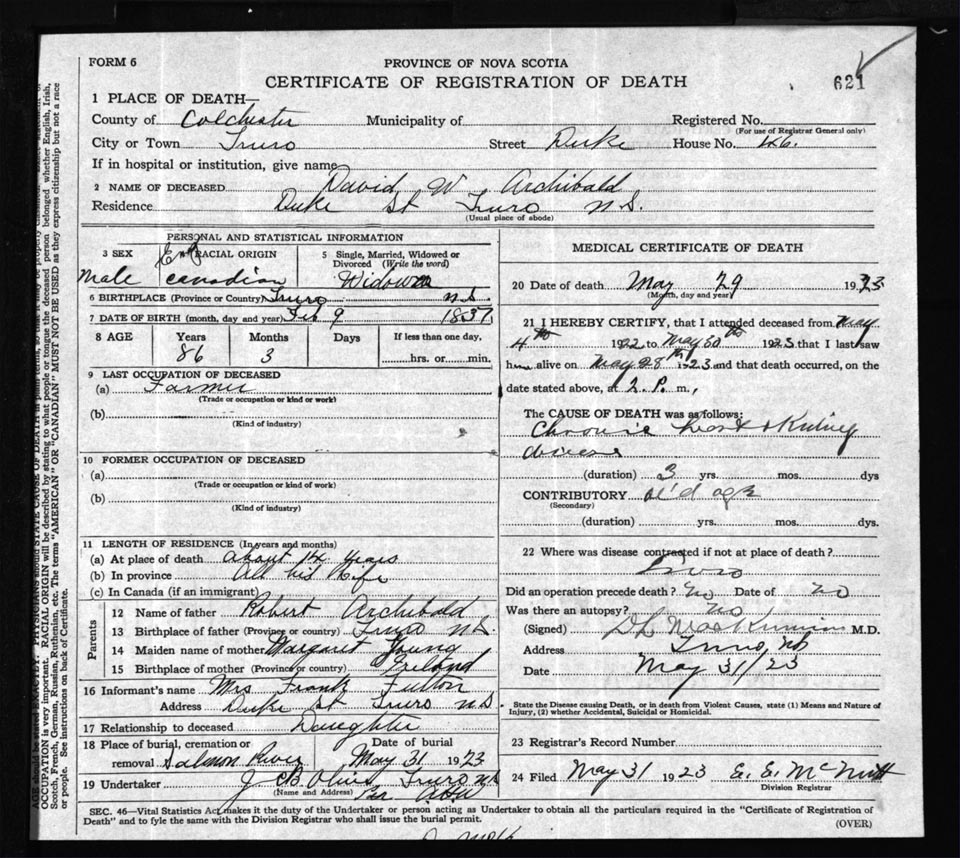 FORM 6
PROVINCE OF NOVA SCOTIA
CERTIFICATE OF REGISTRATION OF DEATH
621
1 PLACE OF DEATH—
County of Colchester Municipality of Registered No.
(For use of Registrar General only)
City or Town Truro Street Duke House No. 46.
If in hospital or institution, give name
2 NAME OF DECEASED David W Archibald
Residence Duke St Truro N.S.
(Usual place of abode)
PERSONAL AND STATISTICAL INFORMATION
3 SEX RACIAL ORIGIN 5 Single, Married, Widowed or
Divorced (Write the word)
Male Canadian Widower
6 BIRTHPLACE (Province or Country) Truro N.S.
7 DATE OF BIRTH (month, day and year) Feb 9 1837
8 AGE Years Months Days If less than one day,
86 3 hrs. or min.
9 LAST OCCUPATION OF DECEASED
(a) Farmer
(Trade or occupation or kind or work)
(b)
(Kind of industry)
10 FORMER OCCUPATION OF DECEASED
(a)
(Trade or occupation or kind of work)
(b)
(Kind of industry)
11 LENGTH OF RESIDENCE (In years and months)
(a) At place of death About 14 years
(b) In province All his life
(c) In Canada (if an immigrant)
Parents
12 Name of father Robert Archibald
13 Birthplace of father (Province or country) Truro N.S
14 Maiden name of mother Margaret Young
15 Birthplace of mother (Province or country) Ireland
16 Informant's name Mrs Frank Fulton
Address Duke St Truro N.S
17 Relationship to deceased Daughter
18 Place of burial, cremation or Date of burial
removal Salmon River May 31 1923
19 Undertaker J C B Olive Truro N.S
(Name and Address)
MEDICAL CERTIFICATE OF DEATH
20 Date of death May 29 1923
(Month, day and year)
21 I HEREBY CERTIFY, that I attended deceased from May
4th 1922 to May 30th 1923 that I last saw
him alive on May 28th 1923 and that death occurred, on the
date stated above, at 2. P. m.,
The CAUSE OF DEATH was as follows:
Chronic heart & Kidney
disease
(duration) 3 yrs. mos. dys
CONTRIBUTORY old age
(Secondary)
(duration) yrs. mos. dys.
22 Where was disease contracted if not at place of death?
Truro
Did an operation precede death? No Date of No
Was there an autopsy? No
(Signed) M.D.
Address Truro, NS
Date May 31/23
State the Disease causing Death, or in death from Violent Causes, state (1) Means and Nature of
Injury, (2) whether Accidental, Suicidal or Homicidal.
23 Registrar's Record Number
24 Filed May 31 1923 E. E. McNutt
Division Registrar
SEC. 46—Vital Statistics Act, makes it the duty of the Undertaker or person acting as Undertaker to obtain all the particulars required in the "Certificate of Registration of
Death" and to fyle the same with the Division Registrar who shall issue the burial permit.
(OVER)
OCCUPATION is very important. RACIAL ORIGIN will be described by stating to what people or tongue the deceased person belonged whether English, Irish,
Scotch, French, German, Russian, Ruthenian, etc. The terms "AMERICAN" OR "CANADIAN" MUST NOT BE USED as they express citizenship but not a race
or people. See instructions on back of Certificate.